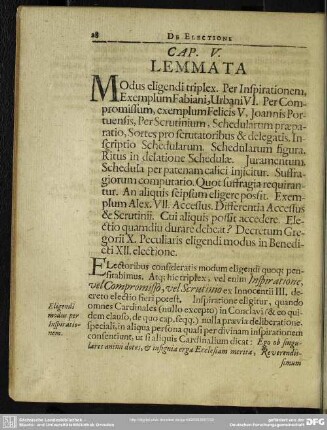 28 DE ELECTIONE
CAP. V.
LEMMATA
MOdus eligendi triplex. Per Inspirationem,
Exemplum Fabiani, Urbani VI. Per Com-
promissum, exemplum Felicis V. Joannis Por-
tuensis, Per Scrutinium, Schedularum præpa-
ratio, Sortes pro scrutatoribus & delegatis. In-
scriptio Schedularum. Schedularum figura.
Ritus in delatione Schedulæ. Juramentum.
Schedula per patenam calici injicitur. Suffra-
giorum computatio. Quot suffragia requiran-
tur. An aliquis seipsum eligere possit. Exem-
plum Alex. VII. Accessus. Differentia Accessus
& Scrutinii. Cui aliquis possit accedere. Ele-
ctio quamdiu durare debeat? Decretum Gre-
gorii X. Peculiaris eligendi modus in Benedi-
cti XII. electione.
ELectoribus consideratis modum eligendi quoq; pen-
sitabimus. Atq; hic triplex, vel enim Inspiratione,
vel Compromisso, vel Scrutinio ex Innocentii III. de-
creto electio fieri potest. Inspiratione eligitur, quando
omnes Cardinales (nullo excepto) in Conclavi (& eo qui-
dem clauso, de quo cap. seqq.) nulla prævia deliberatione
speciali, in aliqua persona quasi per divinam inspirationem
consentiunt, ut si aliquis Cardinalium dicat: Ego ob singu-
lares animi dotes, & insignia erga Ecclesiam merita, Reverendis-
simum
Eligendi
modus per
Inspiratio-
nem.